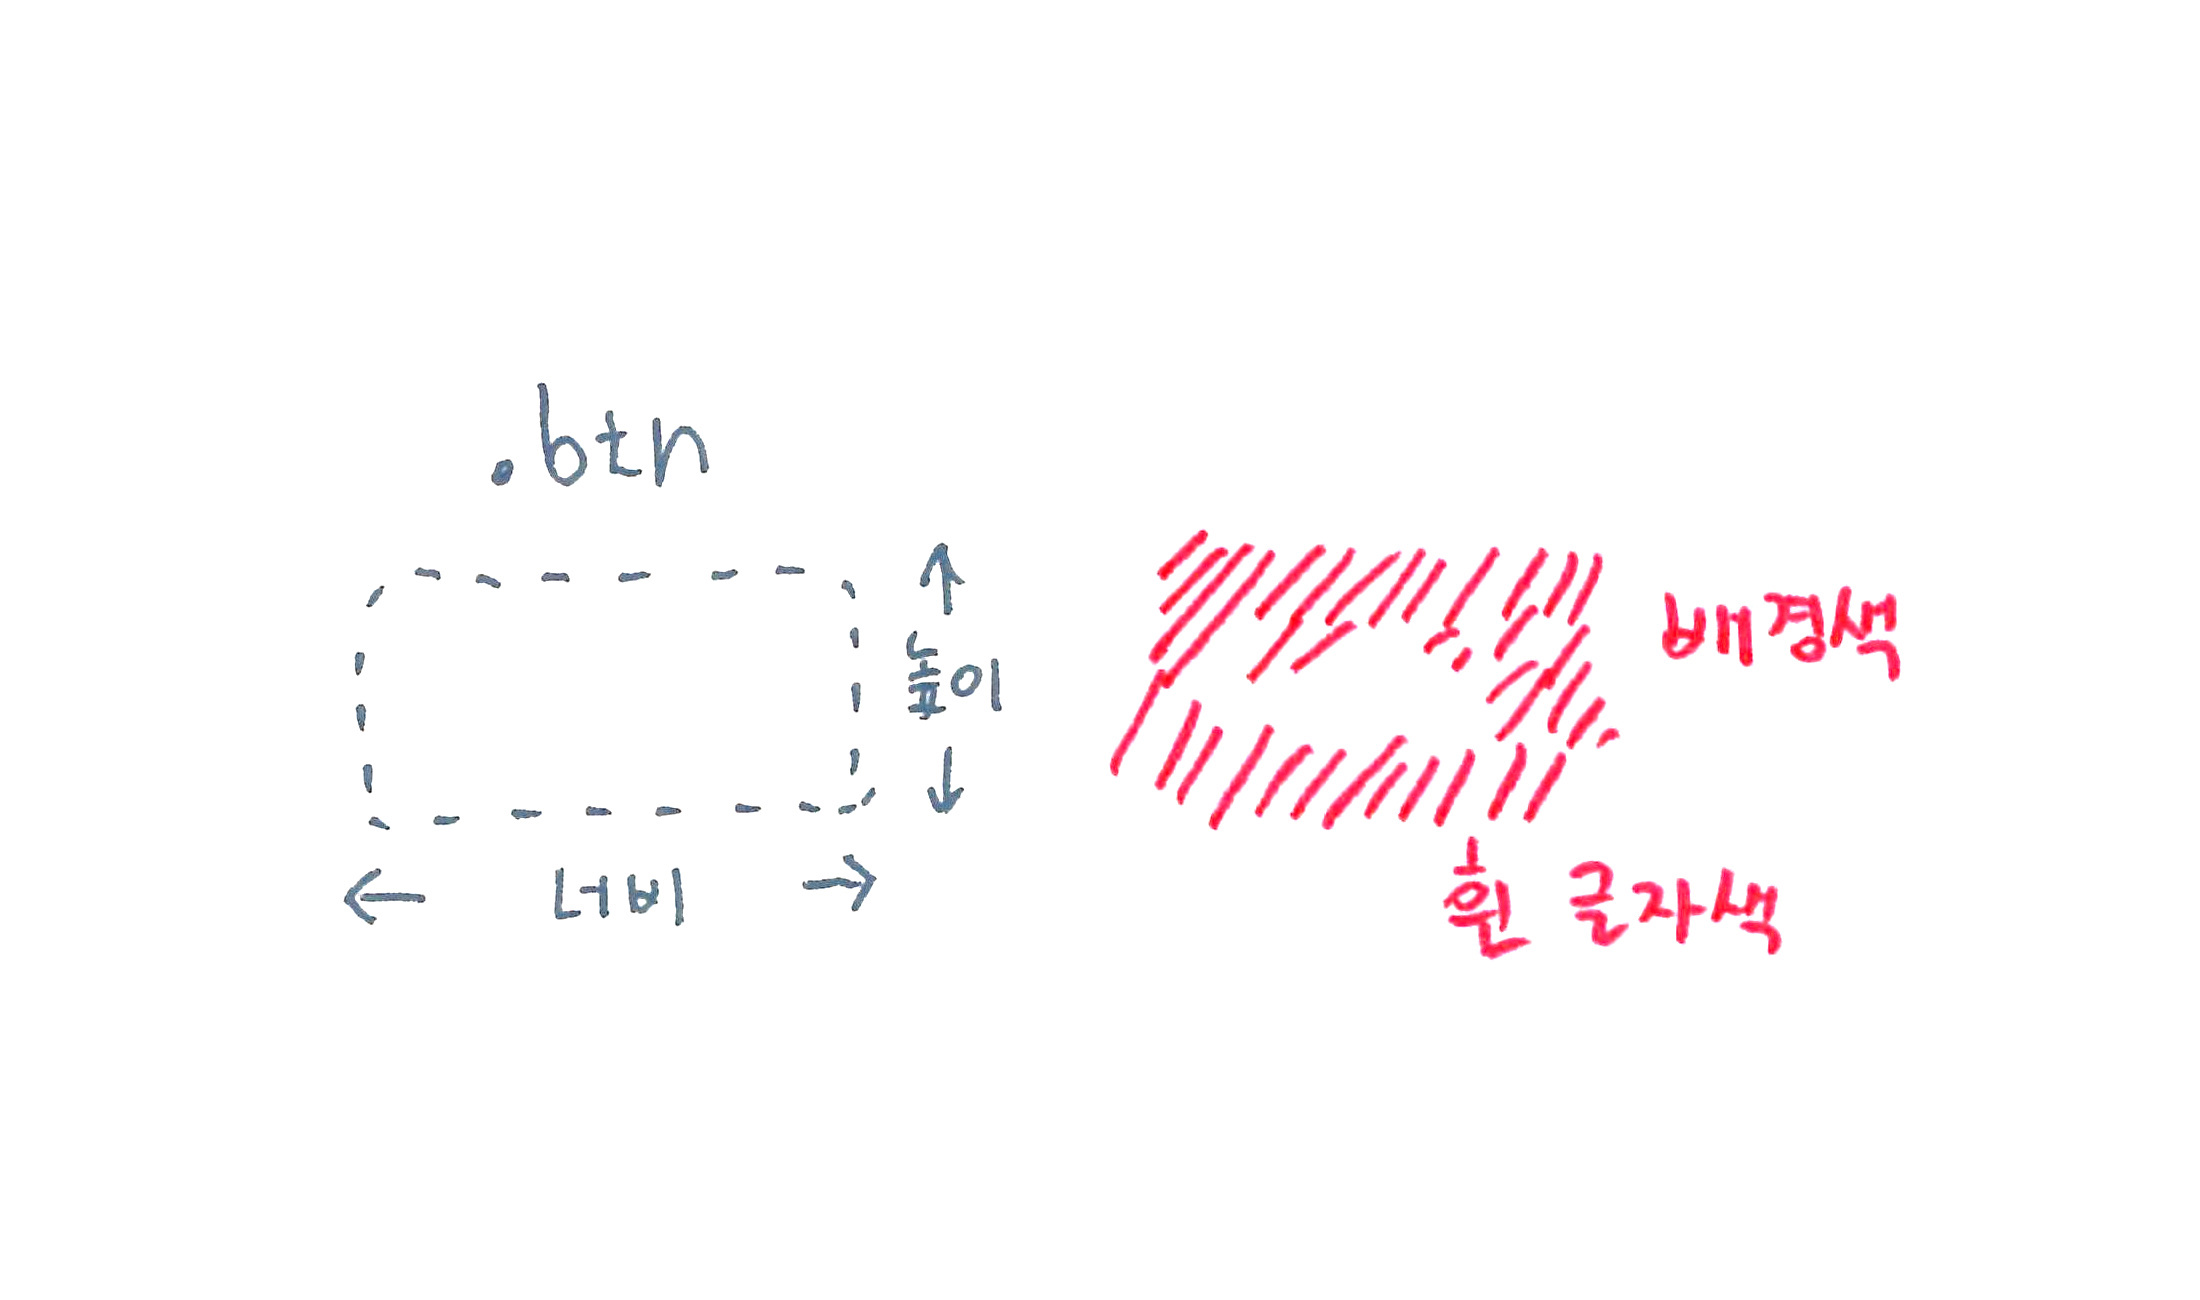 .btn
높이
너비
배경색
흰 글자색